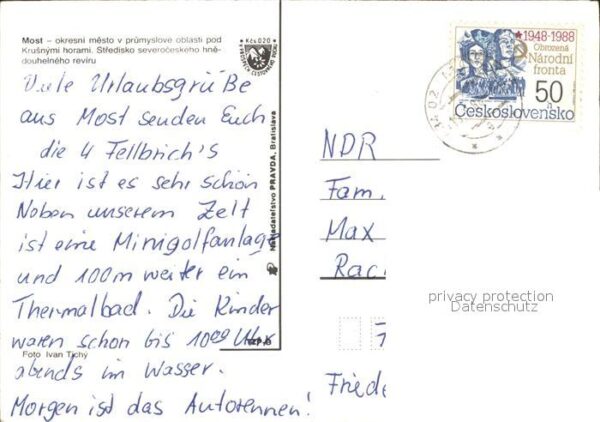 Most – okresní město v průmyslové oblasti pod
Krušnými horami. Středisko severočeského hně-
douhelného revíru
Kčs 0,20
Viele Urlaubsgrüße
aus Most senden Euch
die 4 Fellbrich's
Hier ist es sehr schön
Neben unserem Zelt
ist eine Minigolfanlage
und 100m weiter ein
Thermalbad. Die Kinder
waren schon bis 10⁰⁰ Uhr
abends im Wasser.
Morgen ist das Autorennen!
Foto Ivan Tichý
Nakladateľstvo PRAVDA, Bratislava
1948-1988
Obrozená
Národní
fronta
50 h
Československo
NDR
Fam.
Max
Rac
7
Friede
privacy protection
Datenschutz